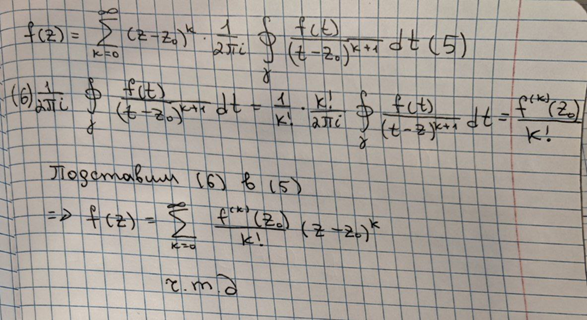 f(z) = ∑_{k=0}^{∞} (z-z₀)^k · 1/(2πi) ∮_γ f(t)/(t-z₀)^{k+1} dt (5)
(6) 1/(2πi) ∮_γ f(t)/(t-z₀)^{k+1} dt = 1/k! · k!/(2πi) ∮_γ f(t)/(t-z)^{k+1} dt = f^{(k)}(z₀)/k!
Подставим (6) в (5)
=> f(z) = ∑_{k=0}^{∞} f^{(k)}(z₀)/k! (z-z₀)^k
ч.т.д